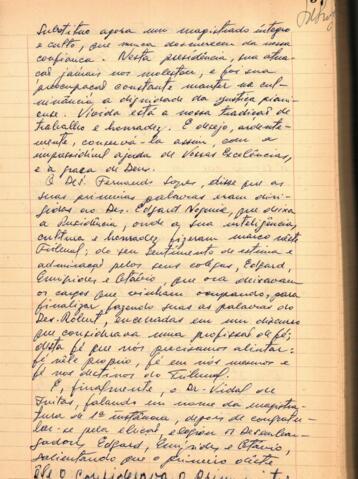 Substituo agora um magistrado íntegro
e culto, que nunca desmereceu da nossa
confiança. Nesta presidência, sua atua-
ção jamais nos molestou, e foi sua
preocupação constante manter na cul-
minância a dignidade da justiça piaui-
ense. Vivida está a nossa tradição de
trabalho e honradez. E desejo, ardente-
mente, conservá-la assim, com a
imprescindível ajuda de Vossas Excelências,
e a graça de Deus.
O Des. Fernando Lopes, disse que as
suas primeiras palavras eram diri-
gidas ao Des. Edgard Nogueira, que deixa
a Presidência, onde a sua inteligência,
cultura e honradez fizeram marco neste
Tribunal; do seu sentimento de estima e
admiração pelos seus colegas, Edgard,
Eurípides e Otávio que ora deixavam
os cargos que vinham ocupando, para
finalizar fazendo suas as palavras do
Des. Robert enunciadas em um discurso
que considerava uma profissão de fé;
desta fé que nós precisamos alientar:
fé nele próprio, fé em nós mesmos e
fé nos destinos do Tribunal.
E, finalmente, o Dr. Vidal de
Freitas, falando em nome da magistra-
tura de 1ª instância, depois de congratu-
lar-se pela eleição e os Desembar-
gadores, Edgard, Eurípides e Otávio,
salientando que o primeiro